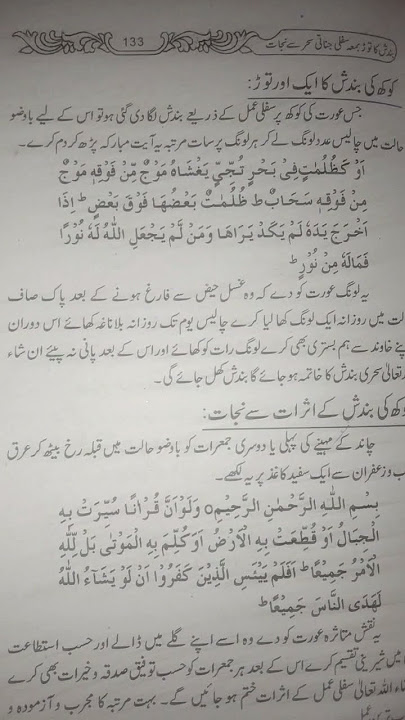 بندش کا توڑ بمعہ سفلی جناتی سحر سے نجات
133
کوکھ کی بندش کا ایک اور توڑ:
جس عورت کی کوکھ پر سفلی عمل کے ذریعے بندش لگا دی گئی ہو تو اس کے لیے باوضو
حالت میں چالیس عدد لونگ لے کر ہر لونگ پر سات مرتبہ یہ آیت مبارکہ پڑھ کر دم کرے۔
اَوْ کَظُلُمٰتٍ فِیْ بَحْرٍ لُّجِّیٍّ یَّغْشٰاہُ مَوْجٌ مِّنْ فَوْقِہٖ مَوْجٌ
مِنْ فَوْقِہٖ سَحَابٌ ط ظُلُمٰتٌ بَعْضُہَا فَوْقَ بَعْضٍ ط اِذَا
اَخْرَجَ یَدَہٗ لَمْ یَکَدْ یَرَاھَا وَمَنْ لَّمْ یَجْعَلِ اللّٰہُ لَہٗ نُوْرًا
فَمَالَہٗ مِنْ نُوْرٍ ط
یہ لونگ عورت کو دے کہ وہ غسل حیض سے فارغ ہونے کے بعد پاک صاف
لت میں روزانہ ایک لونگ کھا لیا کرے چالیس یوم تک روزانہ بلا ناغہ کھائے اس دوران
پنے خاوند سے ہم بستری بھی کرے لونگ رات کو کھائے اور اس کے بعد پانی نہ پیئے ان شاء
تعالیٰ سحری بندش کا خاتمہ ہو جائے گا بندش کھل جائے گی۔
کوکھ کی بندش کے اثرات سے نجات:
چاند کے مہینے کی پہلی یا دوسری جمعرات کو باوضو حالت میں قبلہ رخ بیٹھ کر عرق
ب وزعفران سے ایک سفید کاغذ پر یہ لکھے۔
بِسْمِ اللّٰہِ الرَّحْمٰنِ الرَّحِیْمِ ہ وَلَوْاَنَّ قُرْاٰنًا سُیِّرَتْ بِہِ
الْجِبَالُ اَوْ قُطِّعَتْ بِہِ الْاَرْضُ اَوْ کُلِّمَ بِہِ الْمَوْتٰی بَلْ لِلّٰہِ
الْاَمْرُ جَمِیْعًا ط اَفَلَمْ یَیْئَسِ الَّذِیْنَ کَفَرُوْا اَنْ لَوْ یَشَآءُ اللّٰہُ
لَھَدَی النَّاسَ جَمِیْعًا ط
یہ نقش متاثرہ عورت کو دے وہ اسے اپنے گلے میں ڈالے اور حسب استطاعت
میں شیرینی تقسیم کرے اس کے بعد ہر جمعرات کو حسب توفیق صدقہ و خیرات بھی کرے
شاء اللہ تعالیٰ سفلی عمل کے اثرات ختم ہو جائیں گے۔ بہت مرتبہ کا مجرب و آزمودہ و